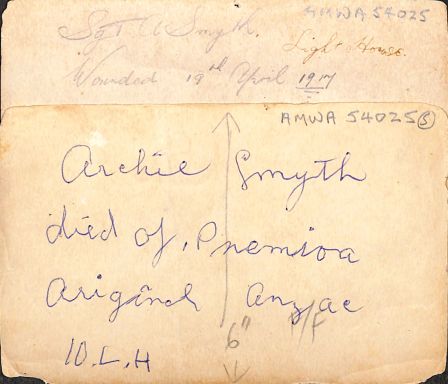 AMWA 54025
Sgt A Smyth.
Light Horse.
Wounded 19th April 1917
AMWA 54025 (3)
Archie Smyth
died of, Pnemioa
Ariginch Anzac
F
6"
10.L.H